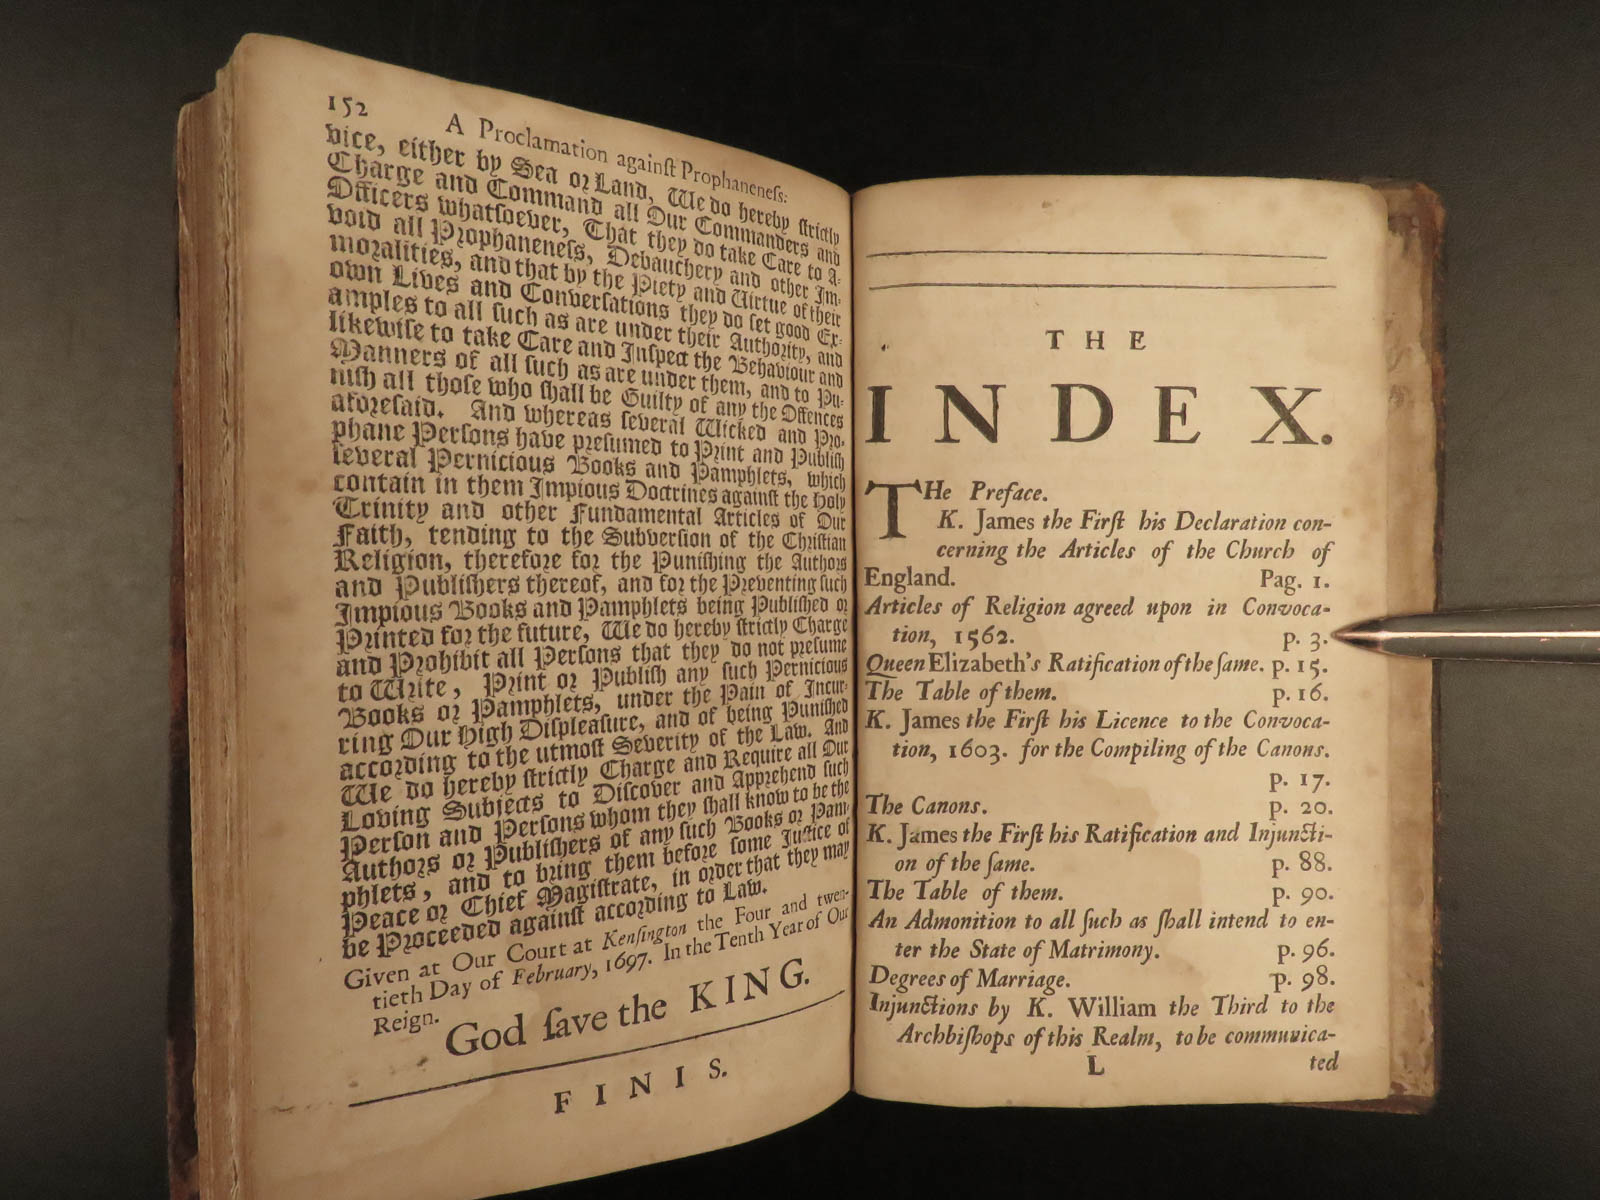 152
A Proclamation againſt Prophaneneſs:
vice, either by Sea or Land, We do hereby ſtrictly
Charge and Command all Our Commanders and
Officers whatſoever, That they do take Care to A-
void all Prophaneneſs, Debauchery and other Im-
moralities, and that by the Piety and Virtue of their
own Lives and Converſations they do ſet good Ex-
amples to all ſuch as are under their Authority, and
likewiſe to take Care and Inſpect the Behaviour and
Manners of all ſuch as are under them, and to Pu-
niſh all thoſe who ſhall be Guilty of any the Offences
aforeſaid. And whereas ſeveral Wicked and Pro-
phane Perſons have preſumed to Print and Publiſh
ſeveral Pernicious Books and Pamphlets, which
contain in them Impious Doctrines againſt the Holy
Trinity and other Fundamental Articles of Our
Faith, tending to the Subverſion of the Chriſtian
Religion, therefore for the Puniſhing the Authors
and Publiſhers thereof, and for the Preventing ſuch
Impious Books and Pamphlets being Publiſhed or
Printed for the future, We do hereby ſtrictly Charge
and Prohibit all Perſons that they do not preſume
to Write, Print or Publiſh any ſuch Pernicious
Books or Pamphlets, under the Pain of Incur-
ring Our High Diſpleaſure, and of being Puniſhed
according to the utmoſt Severity of the Law. And
We do hereby ſtrictly Charge and Require all Our
Loving Subjects to Diſcover and Apprehend ſuch
Perſon and Perſons whom they ſhall know to be the
Authors or Publiſhers of any ſuch Books or Pam-
phlets, and to bring them before ſome Juſtice of
Peace or Chief Magiſtrate, in order that they may
be Proceeded againſt according to Law.
Given at Our Court at Kenſington the Four and twen-
tieth Day of February, 1697. In the Tenth Year of Our
Reign.
God ſave the KING.
FINIS.
THE
INDEX.
THe Preface.
K. James the Firſt his Declaration con-
cerning the Articles of the Church of
England. Pag. 1.
Articles of Religion agreed upon in Convoca-
tion, 1562. p. 3.
Queen Elizabeth's Ratification of the ſame. p. 15.
The Table of them. p. 16.
K. James the Firſt his Licence to the Convoca-
tion, 1603. for the Compiling of the Canons.
p. 17.
The Canons. p. 20.
K. James the Firſt his Ratification and Injuncti-
on of the ſame. p. 88.
The Table of them. p. 90.
An Admonition to all ſuch as ſhall intend to en-
ter the State of Matrimony. p. 96.
Degrees of Marriage. p. 98.
Injunctions by K. William the Third to the
Archbiſhops of this Realm, to be communica-
L ted